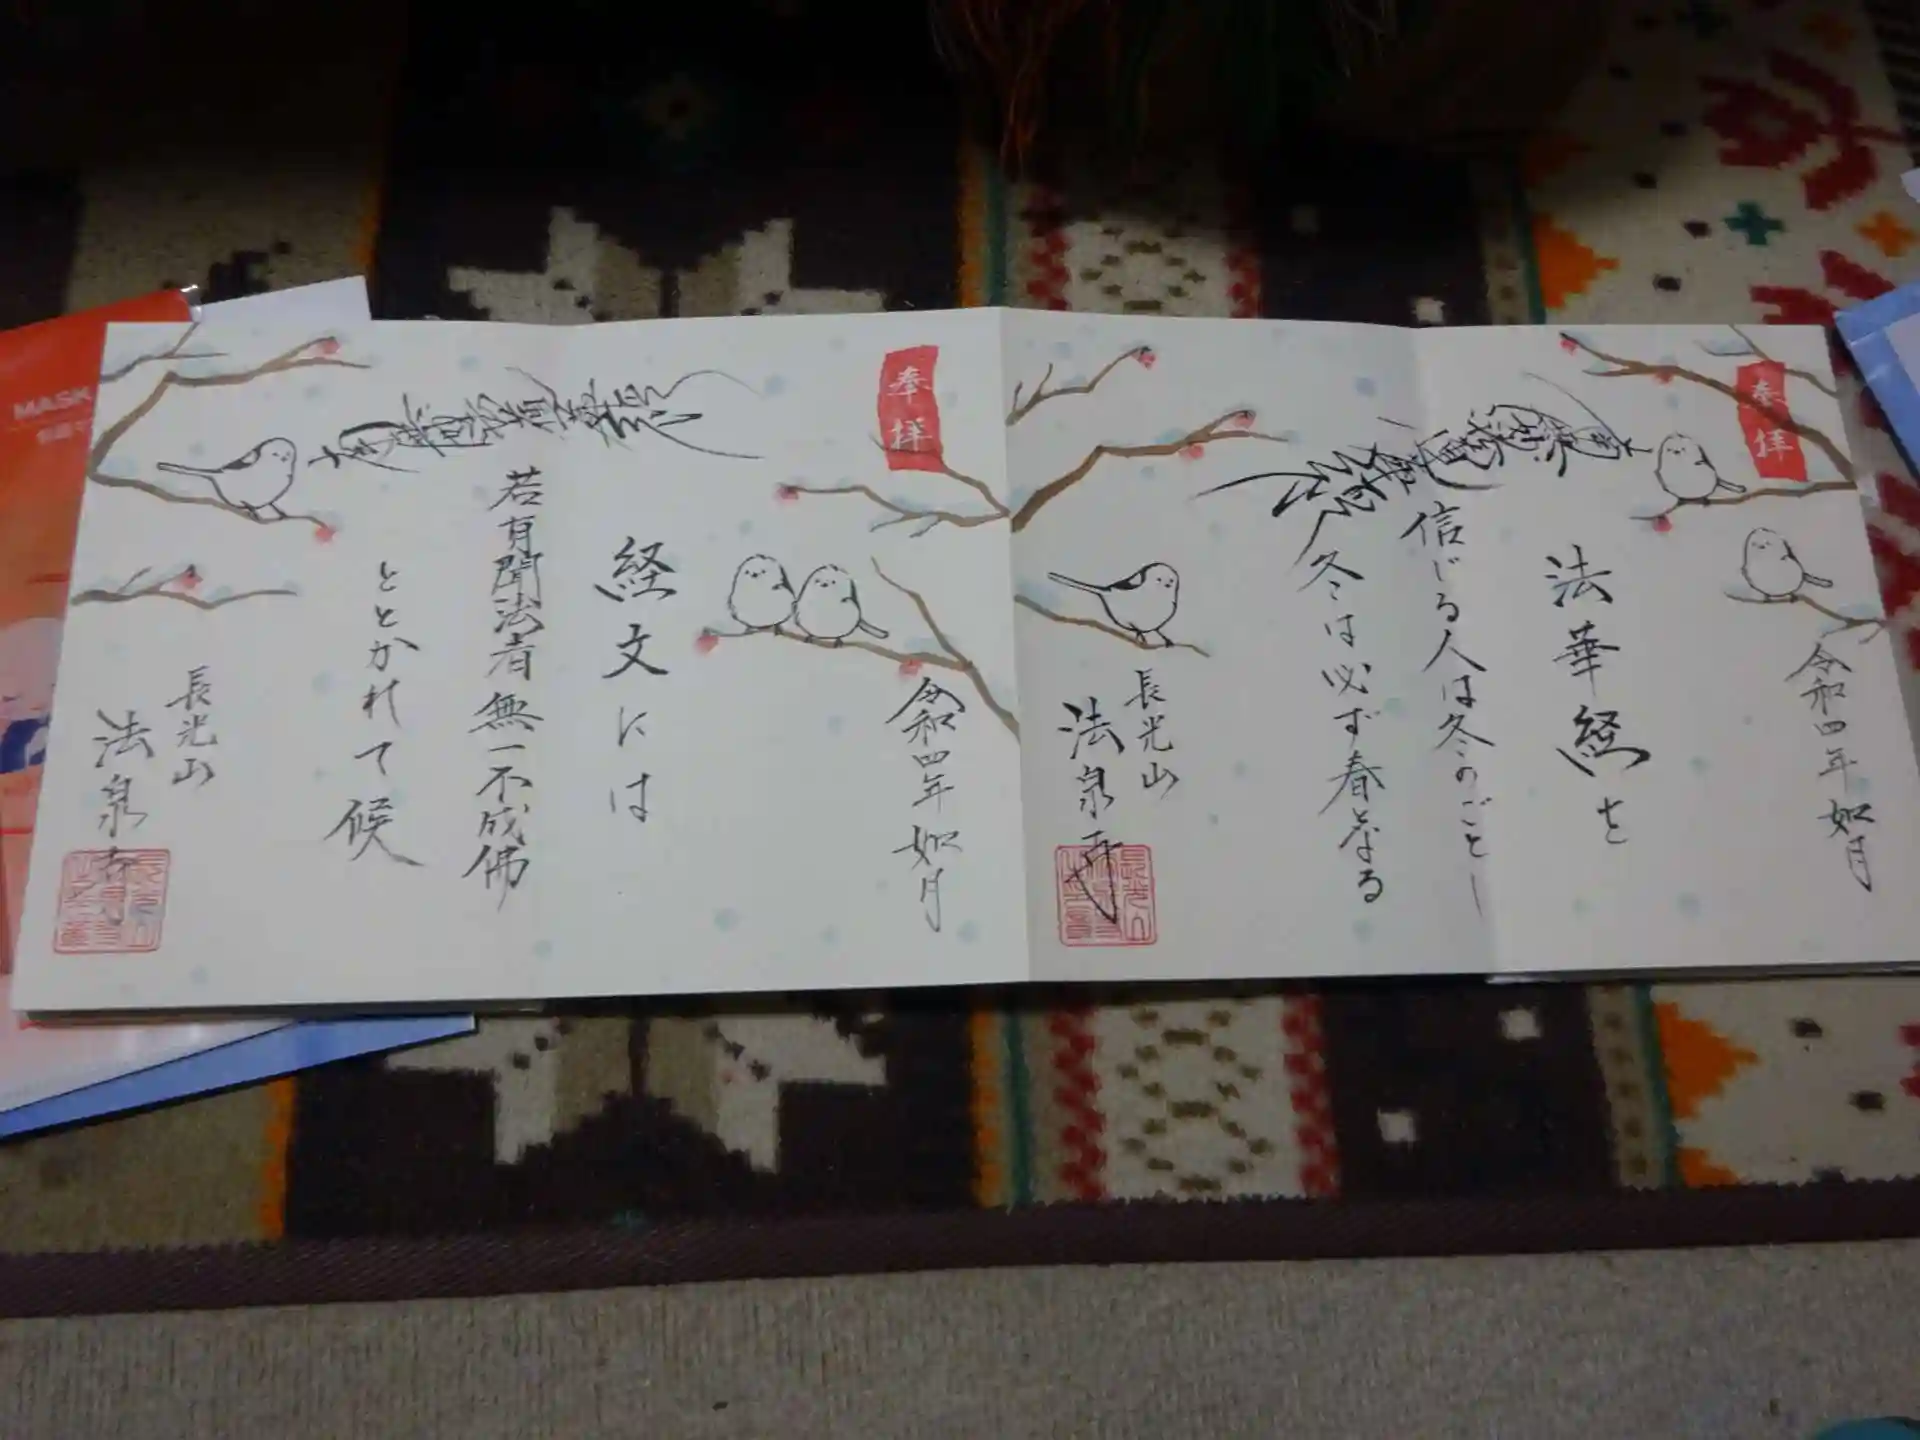 奉拝
令和四年 如月
法華経を
信じる人は冬のごとし
冬は必ず春となる
長光山
法泉寺
奉拝
令和四年 如月
経文には
若有聞法者無一不成佛
ととかれて候
長光山
法泉寺
MASK